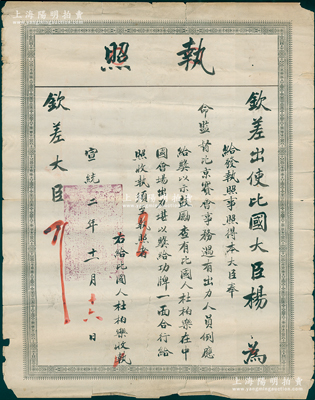 上海陽明拍賣
執照
欽差出使比國大臣楊 為
給發執照事照得本大臣奉
命監督比京賽會事務遇有出力人員例應
給獎以示鼓勵查有比國人杜柏樂在中
國會場出力堪以獎給功牌一面合行給
照收執須至執照者
右給比國人杜柏樂收執
宣統二年十一月十六日
欽差大臣